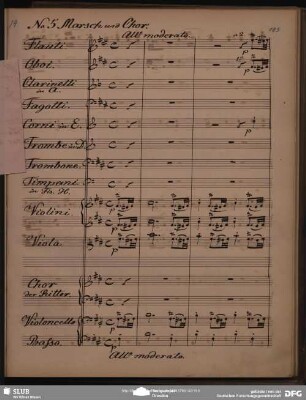 No 5. Marsch und Chor.
Allo moderato.
Flauti
Oboi.
Clarinetti
in A.
Fagotti.
Corni in E.
Trombe in D.
Trombone.
Timpani
in Fis. H.
Violini
Viola.
Chor
der Ritter.
Violoncello
Basso.
p
Allo moderato.
SLUB
Wir führen Wissen.
DFG